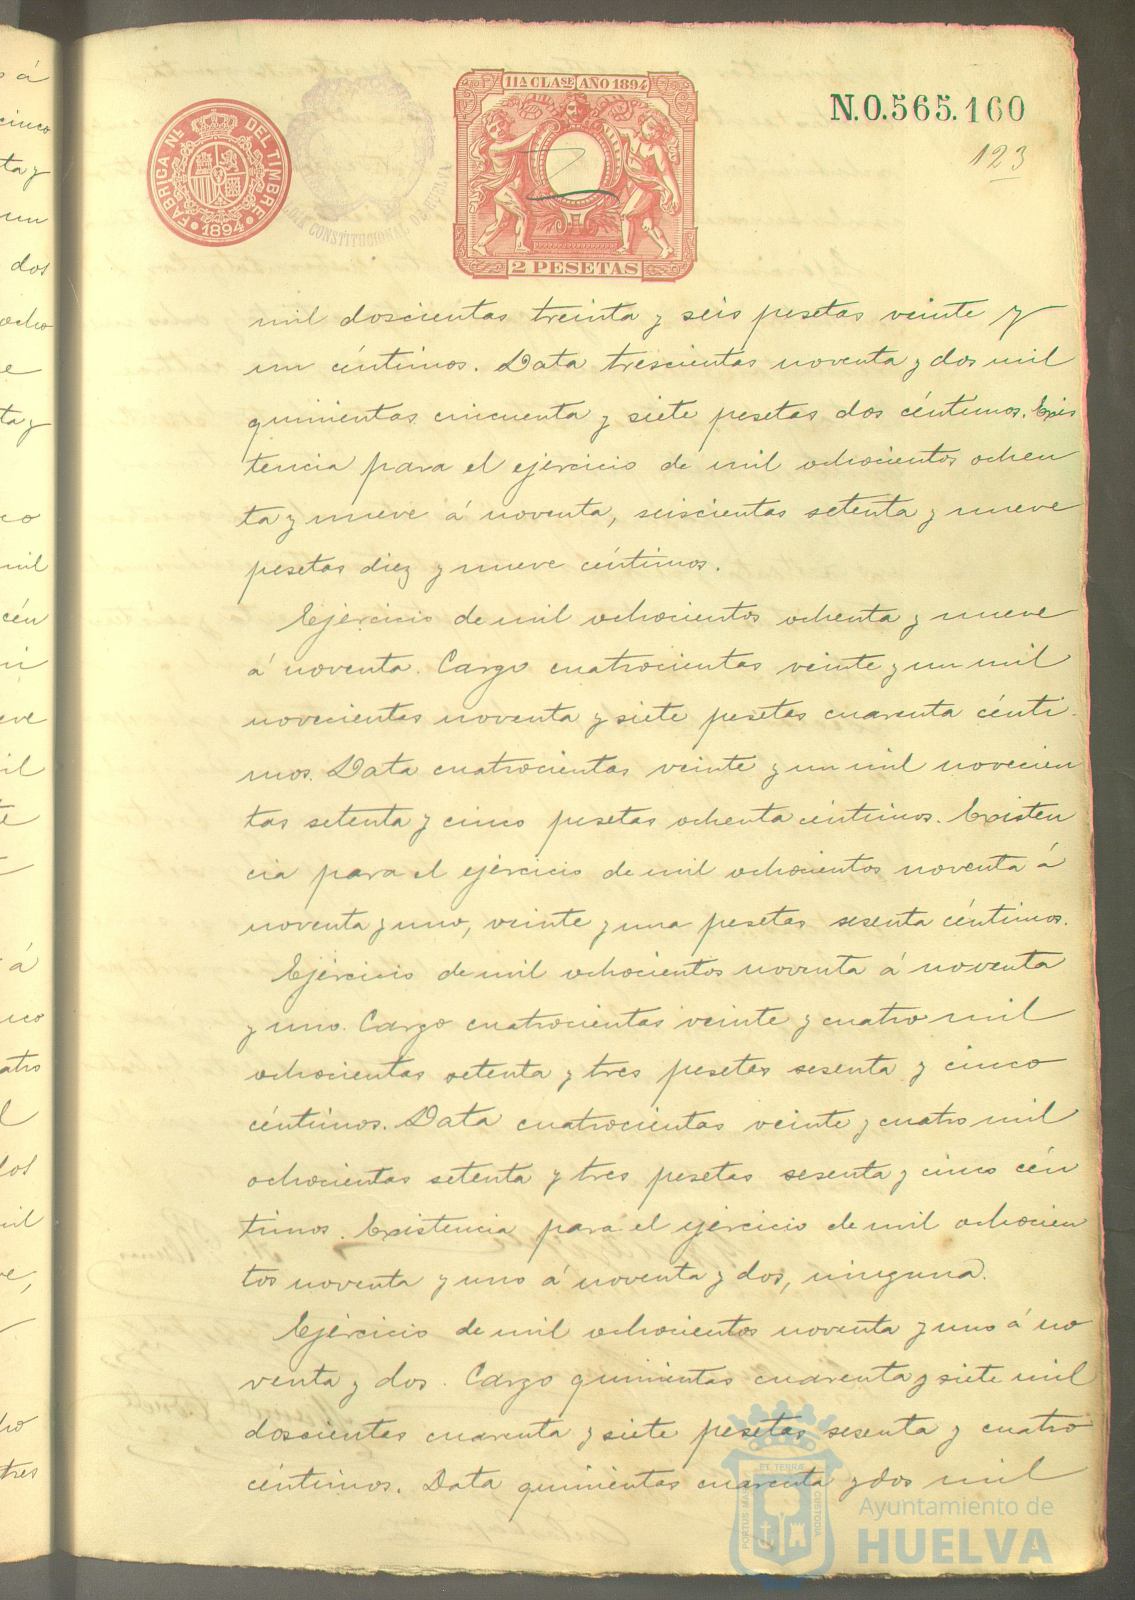 11ª CLASE AÑO 1894
N.0.565.160
123
FABRICA NL. DEL TIMBRE
1894
CONSTITUCIONAL DE HUELVA
2 PESETAS
mil doscientas treinta y seis pesetas veinte y
un céntimos. Data trescientas noventa y dos mil
quinientas cincuenta y siete pesetas dos céntimos. Exis
tencia para el ejercicio de mil ochocientos ochen
ta y nueve á noventa, seiscientas setenta y nueve
pesetas diez y nueve céntimos.
Ejercicio de mil ochocientos ochenta y nueve
á noventa. Cargo cuatrocientas veinte y un mil
novecientas noventa y siete pesetas cuarenta cénti-
mos. Data cuatrocientas veinte y un mil novecien
tas setenta y cinco pesetas ochenta céntimos. Existen
cia para el ejercicio de mil ochocientos noventa á
noventa y uno, veinte y una pesetas sesenta céntimos.
Ejercicio de mil ochocientos noventa á noventa
y uno. Cargo cuatrocientas veinte y cuatro mil
ochocientas setenta y tres pesetas sesenta y cinco
céntimos. Data cuatrocientas veinte y cuatro mil
ochocientas setenta y tres pesetas sesenta y cinco cén
timos. Existencia para el ejercicio de mil ochocien
tos noventa y uno á noventa y dos, ninguna.
Ejercicio de mil ochocientos noventa y uno á no
venta y dos. Cargo quinientas cuarenta y siete mil
doscientas cuarenta y siete pesetas sesenta y cuatro
céntimos. Data quinientas cuarenta y dos mil
PORTUS MARIS ET TERRÆ CUSTODIA
Ayuntamiento de
HUELVA